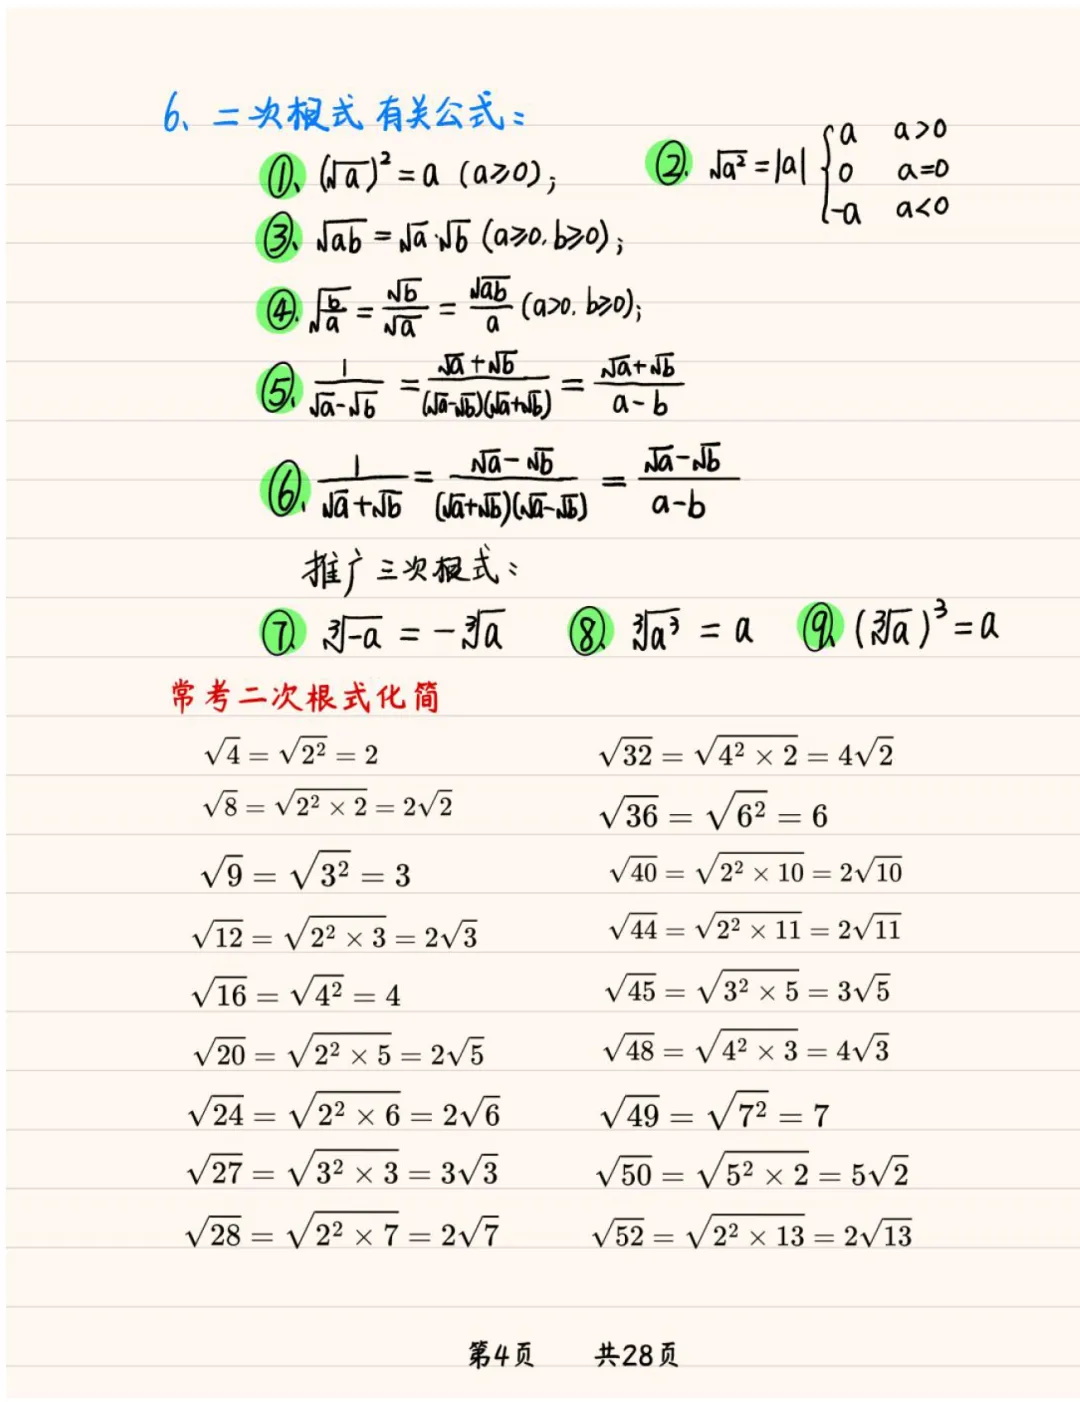 6、二次根式有关公式：
①、(√a)² = a (a≥0)；
②. √a² = |a| { a a>0
0 a=0
-a a<0
③、√ab = √a·√b (a≥0, b≥0)；
④. √(b/a) = √b/√a = √ab/a (a>0, b≥0)；
⑤、1/(√a-√b) = (√a+√b)/((√a-√b)(√a+√b)) = (√a+√b)/(a-b)
⑥、1/(√a+√b) = (√a-√b)/((√a+√b)(√a-√b)) = (√a-√b)/(a-b)
推广三次根式：
⑦、∛-a = -∛a
⑧、∛a³ = a
⑨、(∛a)³ = a
常考二次根式化简
√4 = √2² = 2
√8 = √(2² × 2) = 2√2
√9 = √3² = 3
√12 = √(2² × 3) = 2√3
√16 = √4² = 4
√20 = √(2² × 5) = 2√5
√24 = √(2² × 6) = 2√6
√27 = √(3² × 3) = 3√3
√28 = √(2² × 7) = 2√7
√32 = √(4² × 2) = 4√2
√36 = √6² = 6
√40 = √(2² × 10) = 2√10
√44 = √(2² × 11) = 2√11
√45 = √(3² × 5) = 3√5
√48 = √(4² × 3) = 4√3
√49 = √7² = 7
√50 = √(5² × 2) = 5√2
√52 = √(2² × 13) = 2√13
第4页 共28页